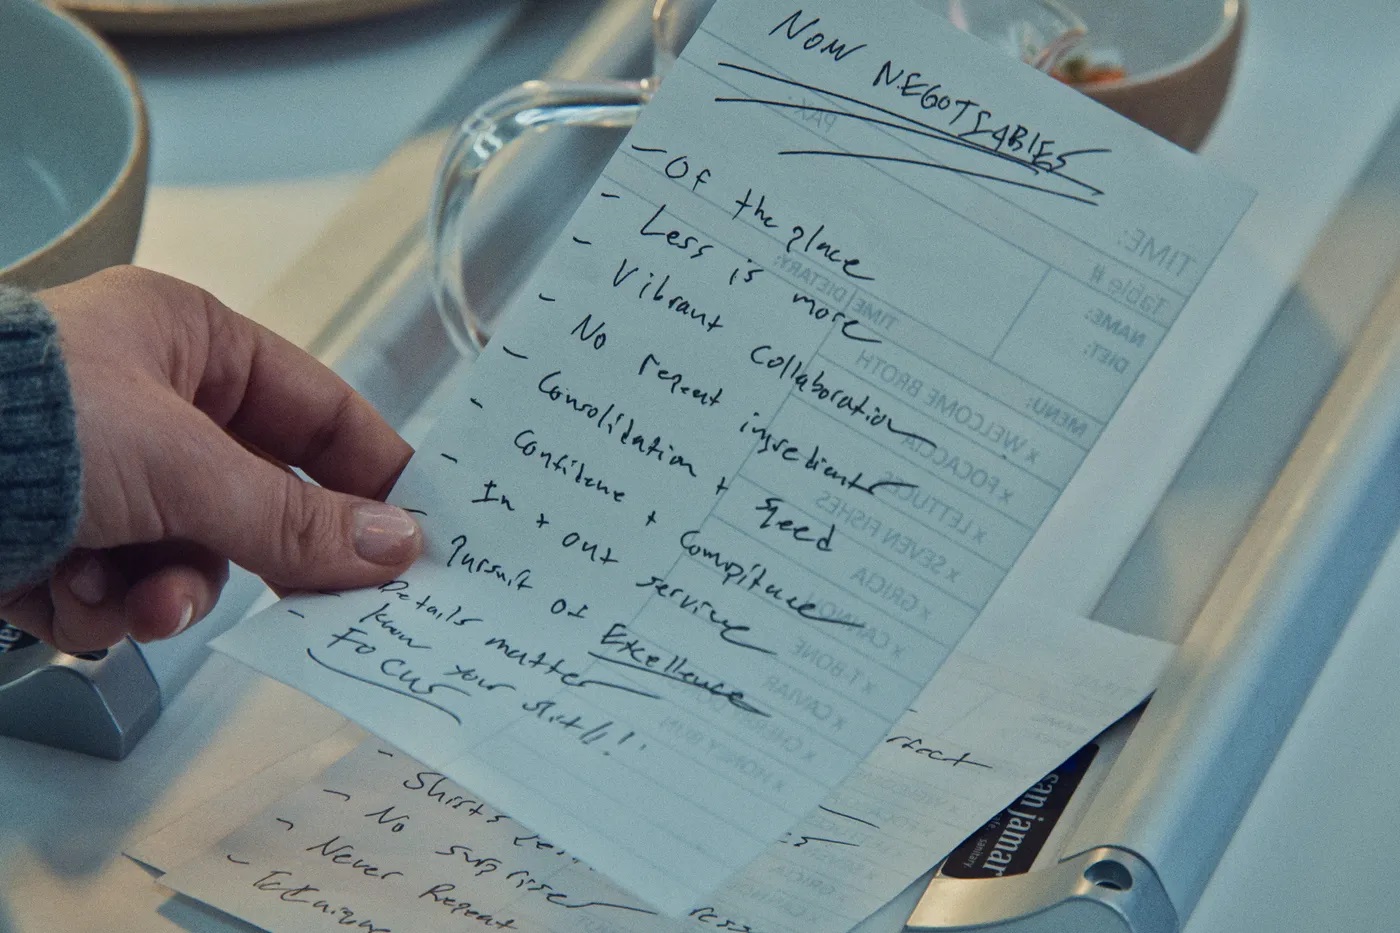 NON NEGOTIABLES
- Of the place
- Less is more
- Vibrant Collaboration
- No repeat ingredients
- Consolidation + speed
- Confidence + Competence
- In + out service
- Pursuit of Excellence
- Details matter
- Know your shit!!!
- FOCUS
TIME:
Table #
PAX
NAME:
DIET:
TIME|DIETARY:
MENU:
x WELCOME BROTH
x FOCACCIA
x LETTUCE
x SEVEN FISHES
x GRICIA
x CANNOLI
x T BONE
x CAVIAR
x HONEY BUN
- Shirts
- No surprises
- Never Repeat
san jamar
safe. sanitary.
GRICIA